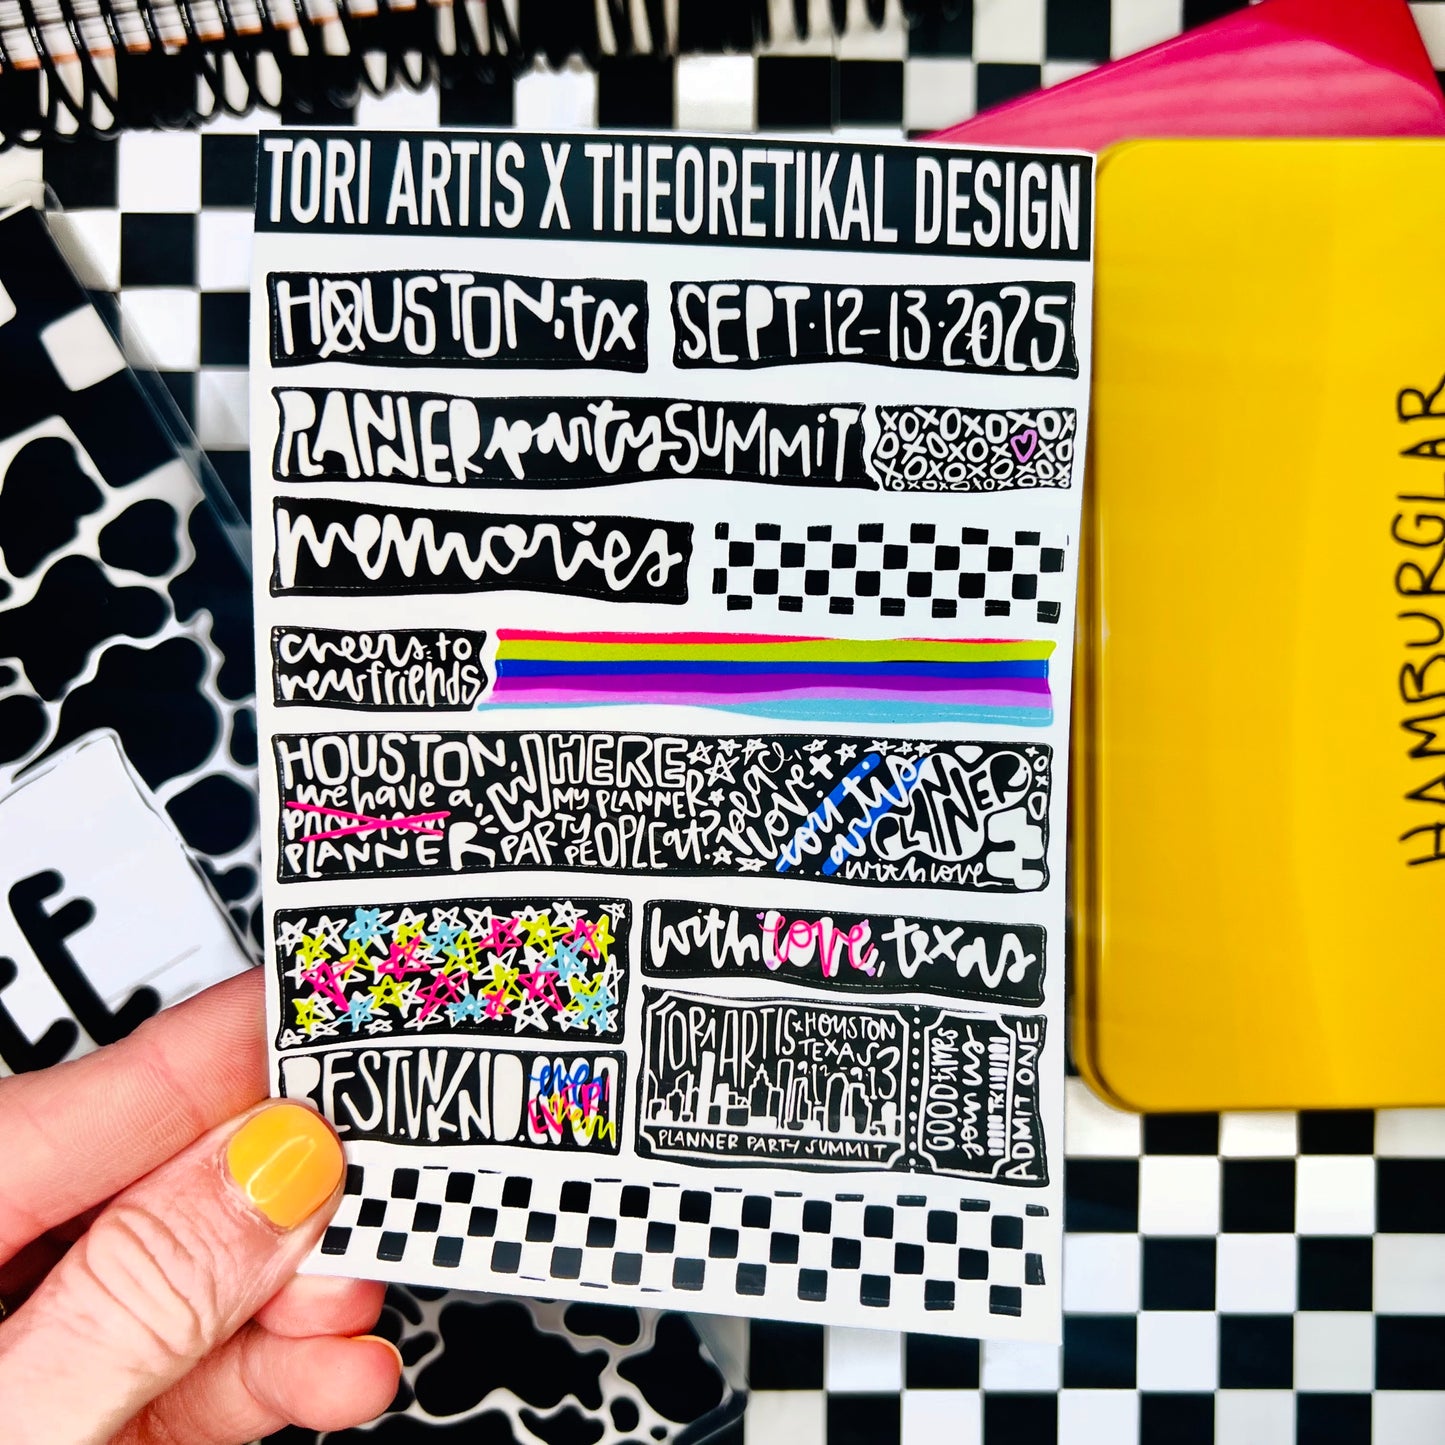 TORI ARTIS X THEORETIKAL DESIGN
HOUSTON, tx
SEPT·12-13·2025
PLANNER party SUMMIT
XOXOXOXOX
memories
cheers to
new friends
HOUSTON,
we have a
PLANNER
WHERE
MY PLANNER
PARTY
PEOPLE at?
peace,
love +
PLANNER
with love
with love, texas
BEST.WKND.EVER
TORI ARTIS x HOUSTON
TEXAS
9.12-9.13
PLANNER PARTY SUMMIT
GOOD times
ADMIT ONE
HAMBURGLAR
CE